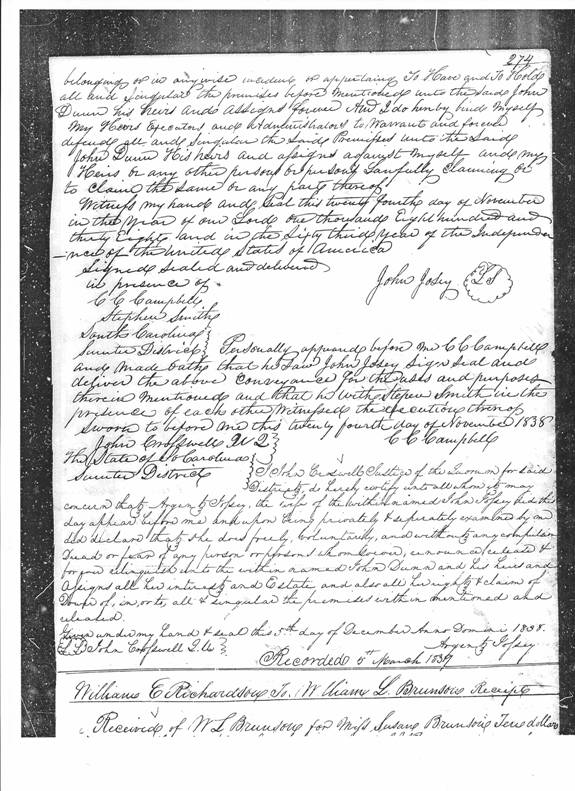 274
belonging or in anywise incident or appertaing To Have and To Hold
all and Singular the premises before mentioned unto the said John
Dunn his heirs and assigns forever And I do hereby bind Myself
My Heirs Executors and Administrators to Warrant and forever
defend all and Singular the Said Premises unto the Said
John Dunn His heirs and assigns against Myself and my
Heirs or any other person or persons Lawfully Claiming or
to claim the same or any part thereof
Witness my hand and Seal this twenty fourth day of November
in the Year of our Lord one thousand Eight hundred and
thirty Eight and in the Sixty third Year of the Independe
nce of the United States of America
Signed Sealed and delivered
in presence of
John Josey LS
C C Campbell
Stephen Smith
South Carolina
Sumter District } Personally appeared before me C C Campbell
and made oath that he Saw John Josey Sign Seal and
deliver the above Conveyance for the uses and purposes
therein Mentioned and that he with Stepen Smith in the
presence of each other Witnessed the execution thereof
Sworn to before me this twenty fourth day of November 1838
John Crosswell Q U C C Campbell
The State of So Carolina
Sumter District } I John Croswell Justice of the Quorum for said
District, do hereby certify unto all whom it may
concern that Argent Jossey, the wife of the within named John Jossey did this
day appear before me and upon being privately & seperately examined by me
did declare that she does freely, voluntarily, and without any compulsion
Dread or fear of any person or persons whomsoever, renounce release &
forever relinquish unto the within named John Dunn and his heirs and
Assigns all her interest and Estate and also all her right & claim of
Dower of, in, or to, all & singular the premises within mentioned and
released.
Given under my hand & seal this 5th day of December Anno Domini 1838.
L S John Crosswell Q. U } Argent Jossey
Recorded 5th March 1839
William E Richardson To William L Brunson Receipt
Received of W L Brunson for Miss Susan Brunson Ten dollars